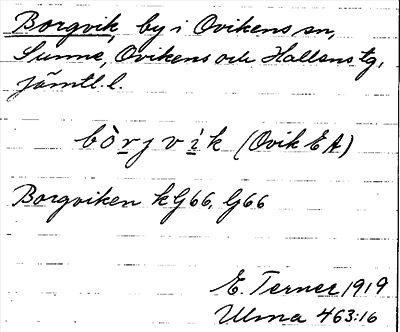 Borgvik, by i Ovikens sn,
Sunne, Ovikens och Hallens tg,
Jämtl. l.
bòrjvìk (Ovik EA)
Borgviken kG66, G66
E. Terner 1919
Ulma 463:16